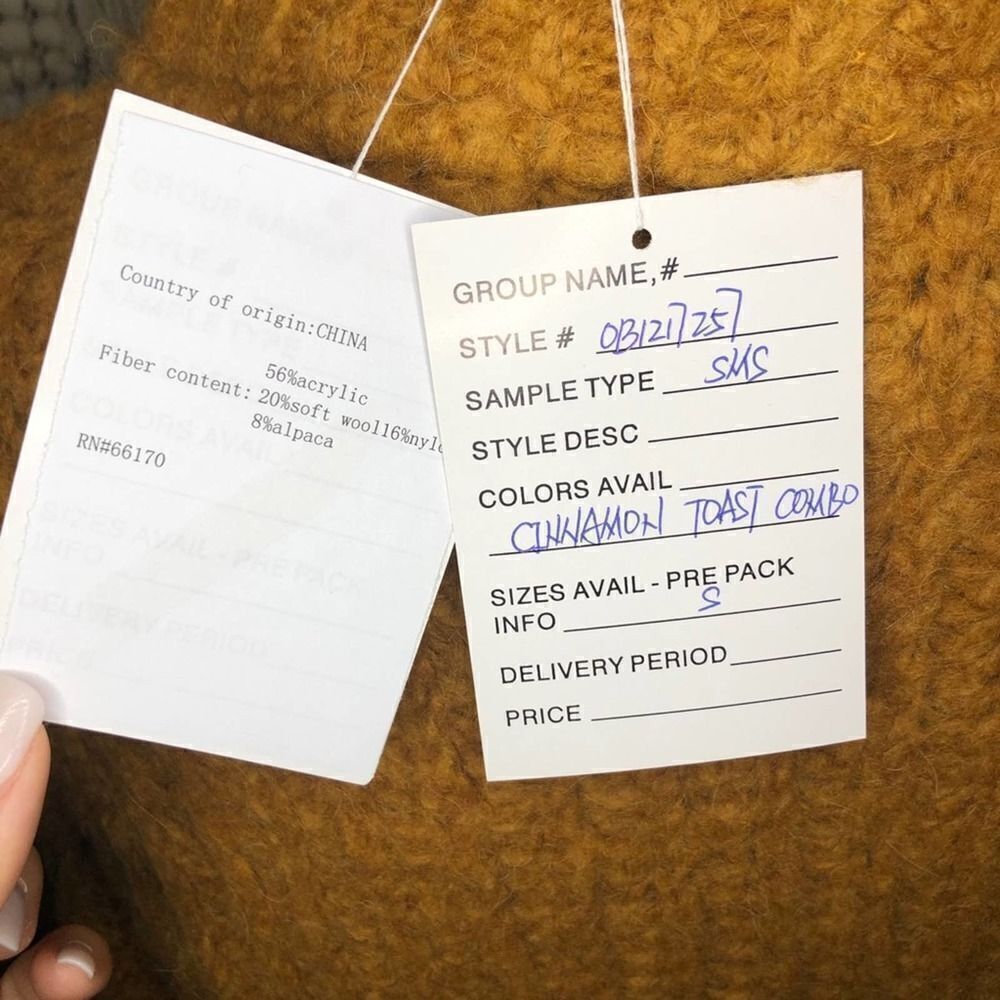 Country of origin:CHINA
56%acrylic
Fiber content: 20%soft wool16%nylo
8%alpaca
RN#66170
GROUP NAME,#
STYLE # OB1217257
SAMPLE TYPE SMS
STYLE DESC
COLORS AVAIL
CINNAMON TOAST COMBO
SIZES AVAIL - PRE PACK
INFO S
DELIVERY PERIOD
PRICE